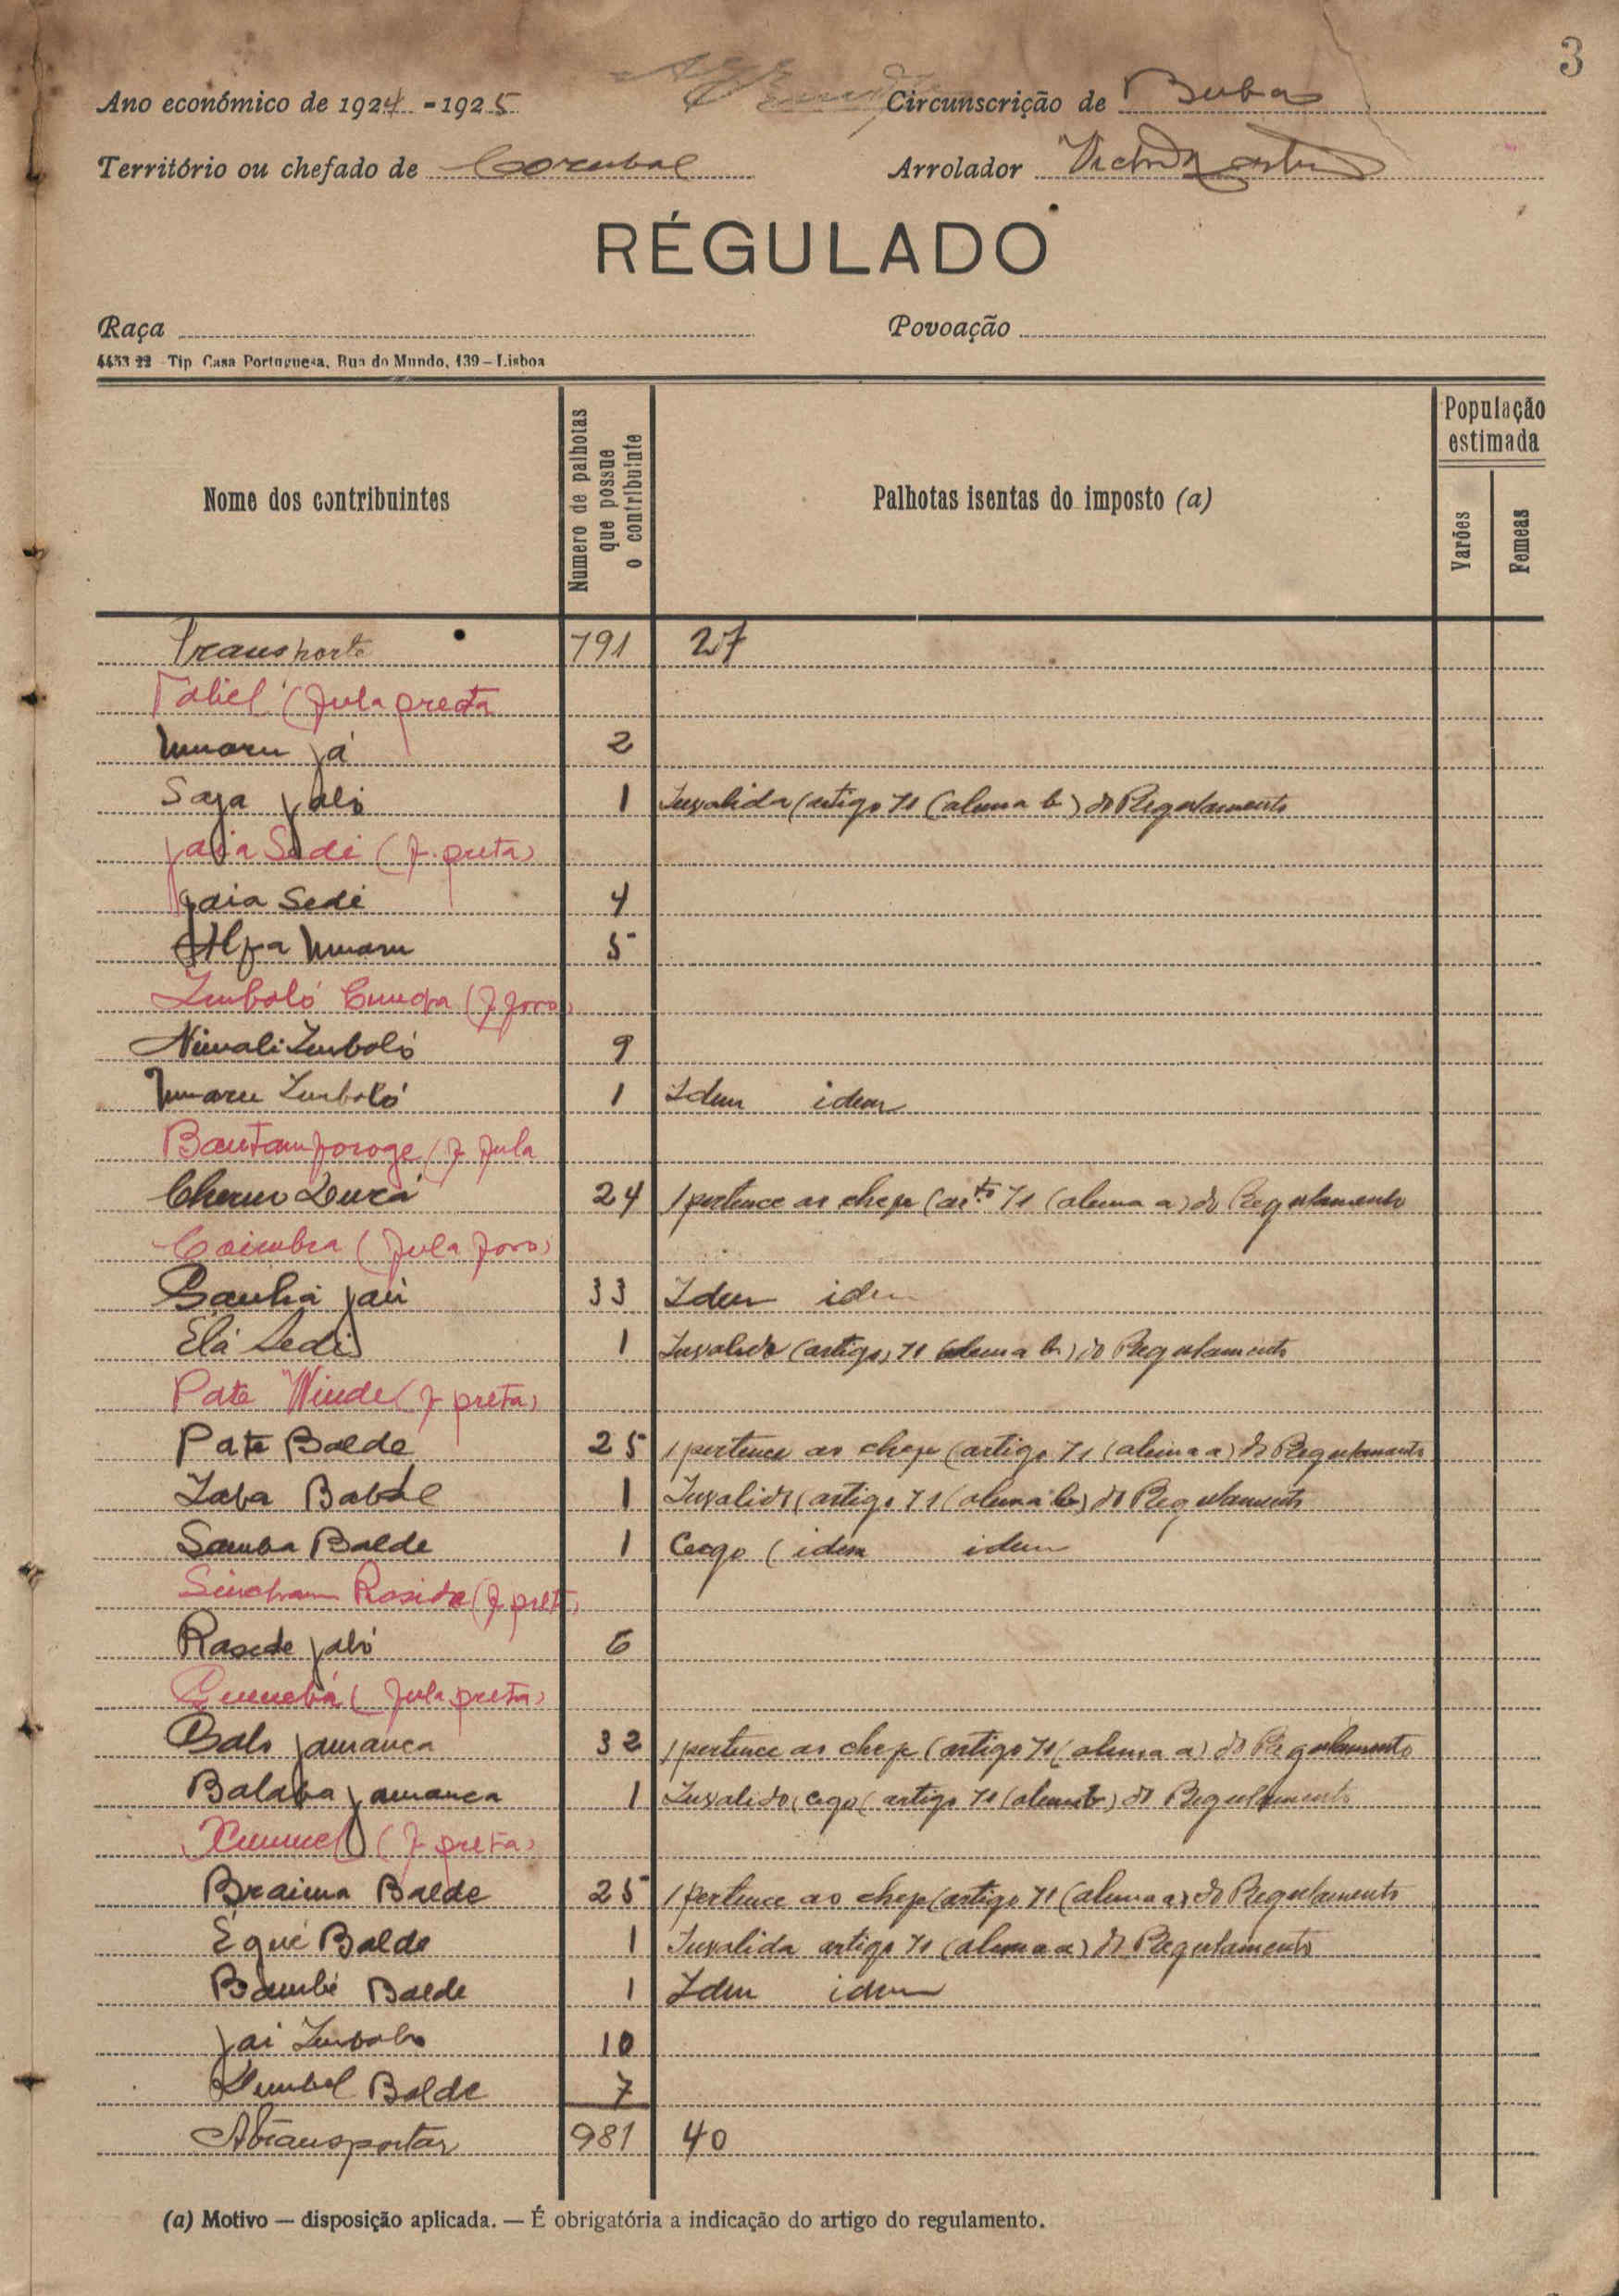 3
Ano económico de 1924 - 1925 Circunscrição de Buba
Território ou chefado de Corubal Arrolador Victor
RÉGULADO
Raça Povoação
4453 22 - Tip. Casa Portuguesa, Rua do Mundo, 139 – Lisboa
Nome dos contribuintes
Numero de palhotas que possue o contribuinte
Palhotas isentas do imposto (a)
População estimada
Varões
Femeas
Transporte 791 27
(fula preta
Umaru Já 2
Saja Jaló 1 Invalida (artigo 71 (alinea b) do Regulamento
Jaia Sedi (f. preta)
Jaia Sedi 4
Alfa Umaru 5
Imbaló Cunda (f foro)
Nimali Imbaló 9
Umaru Imbaló 1 Idem idem
Bantam foroge (f fula
Cherno Durá 24 1 pertence ao chefe (artº 71 (alinea a) do Regulamento
Coimbra (fula foro)
Sanhá Jau 33 Idem idem
Elá Sedi 1 Invalido (artigo) 71 (alinea b) do Regulamento
Pate Winde (f preta)
Pate Balde 25 1 pertence ao chefe (artigo 71 (alinea a) do Regulamento
Iaba Balde 1 Invalido (artigo 71 (alinea b) do Regulamento
Samba Balde 1 Cego (idem idem
Sincham Raside (f preta)
Rasede Jaló 6
(fula preta)
Balo Jamanca 32 1 pertence ao chefe (artigo 71 (alinea a) do Regulamento
Balaba Jamanca 1 Invalido, cego (artigo 71 (alinea b) do Regulamento
(f preta)
Braima Balde 25 1 pertence ao chefe (artigo 71 (alinea a) do Regulamento
Égué Balde 1 Invalida artigo 71 (alinea a) do Regulamento
Bambé Balde 1 Idem idem
Jai Imbalo 10
Balde 7
A transportar 981 40
(a) Motivo — disposição aplicada. — É obrigatória a indicação do artigo do regulamento.